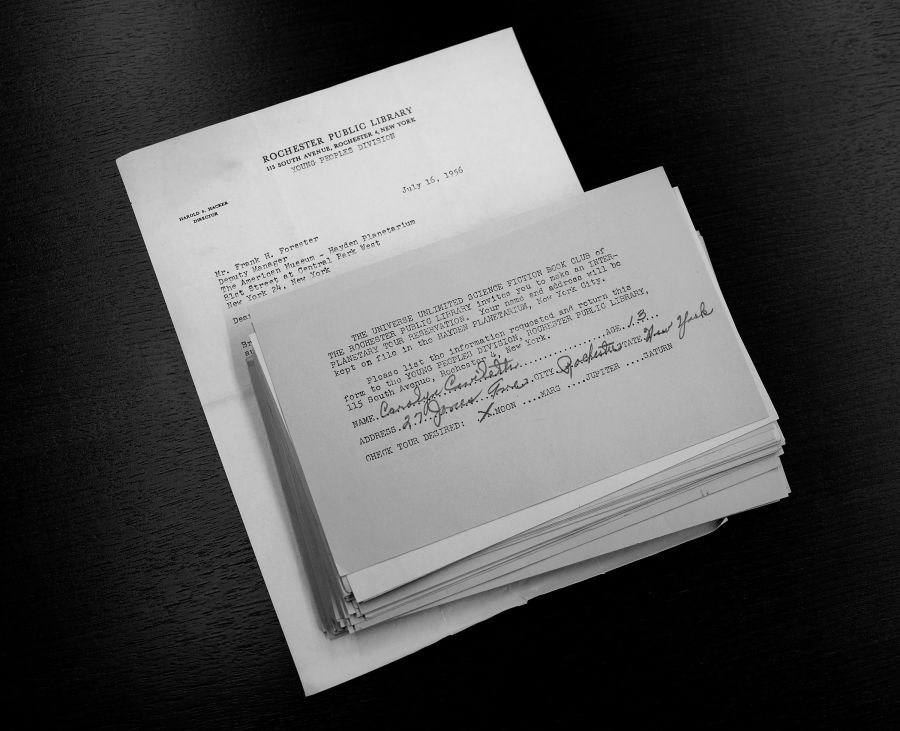 ROCHESTER PUBLIC LIBRARY
115 SOUTH AVENUE, ROCHESTER 4, NEW YORK
YOUNG PEOPLES DIVISION
July 16, 1956
HAROLD S. HACKER
DIRECTOR
Mr. Frank H. Forester
Deputy Manager
The American Museum - Hayden Planetarium
81st Street at Central Park West
New York 24, New York
Dear
THE UNIVERSE UNLIMITED SCIENCE FICTION BOOK CLUB of
THE ROCHESTER PUBLIC LIBRARY invites you to make an INTER-
PLANETARY TOUR RESERVATION. Your name and address will be
kept on file in the HAYDEN PLANETARIUM, New York City.
Please list the information requested and return this
form to the YOUNG PEOPLES DIVISION, ROCHESTER PUBLIC LIBRARY,
115 South Avenue, Rochester 4, New York.
NAME. Carolyn ...AGE. 13...
ADDRESS. 27 Jones .CITY. Rochester STATE New York
CHECK TOUR DESIRED: X.MOON ....MARS ....JUPITER ....SATURN